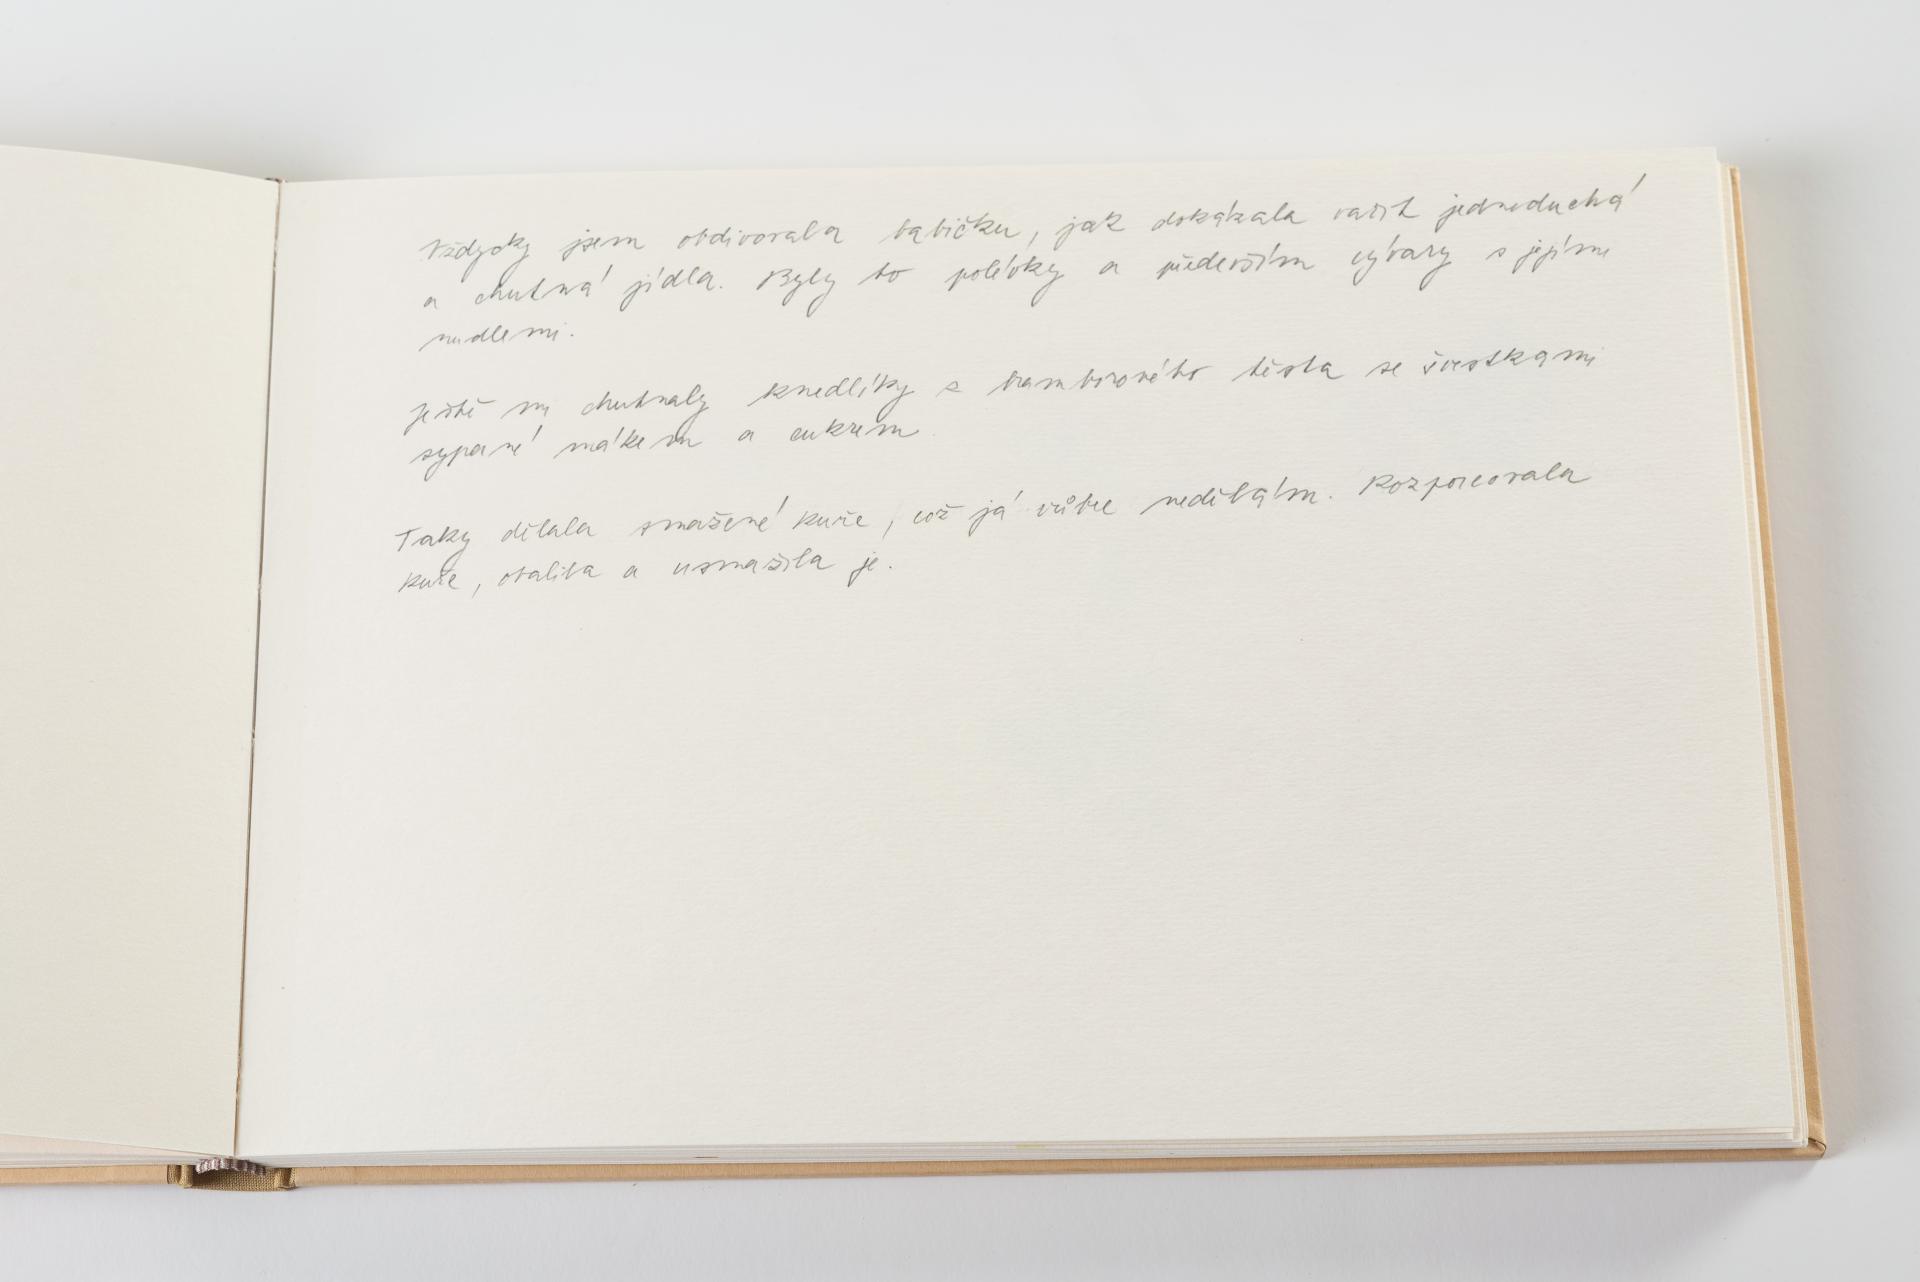 Vždycky jsem obdivovala babičku, jak dokázala vařit jednoduchá
a chutná jídla. Byly to polévky a především vývary s jejími
nudlemi.
Ještě mi chutnaly knedlíky z bramborového těsta se švestkami
sypané mákem a cukrem.
Taky dělala smažené kuře, což já vůbec nedělám. Rozporcovala
kuře, obalila a usmažila je.